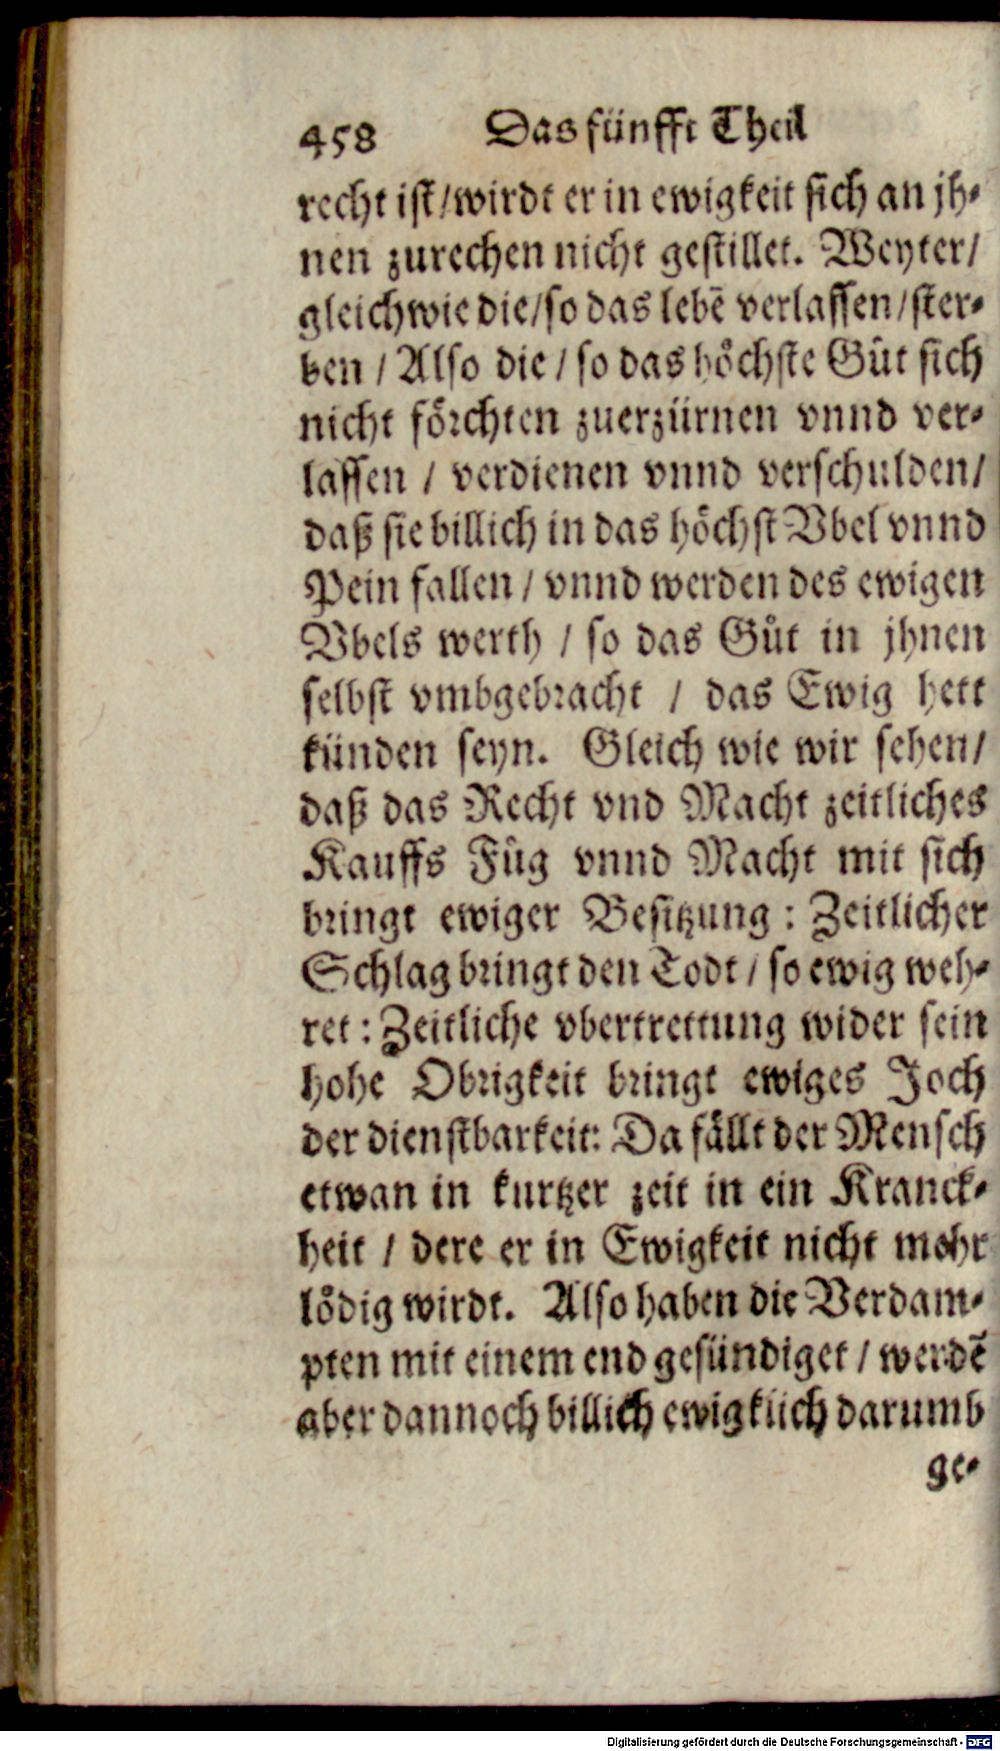 458 Das fünfft Theil
recht ist/wirdt er in ewigkeit sich an jh-
nen zurechen nicht gestillet. Weyter/
gleichwie die/so das lebē verlassen/ster-
ben / Also die / so das höchste Gůt sich
nicht förchten zuerzürnen vnnd ver-
lassen / verdienen vnnd verschulden/
daß sie billich in das höchst Vbel vnnd
Pein fallen / vnnd werden des ewigen
Vbels werth / so das Gůt in jhnen
selbst vmbgebracht / das Ewig hett
künden seyn. Gleich wie wir sehen/
daß das Recht vnd Macht zeitliches
Kauffs Fůg vnnd Macht mit sich
bringt ewiger Besitzung : Zeitlicher
Schlag bringt den Todt / so ewig weh-
ret : Zeitliche vbertrettung wider sein
hohe Obrigkeit bringt ewiges Joch
der dienstbarkeit: Da fällt der Mensch
etwan in kurtzer zeit in ein Kranck-
heit / dere er in Ewigkeit nicht mehr
lödig wirdt. Also haben die Verdam-
pten mit einem end gesündiget / werdē
aber dannoch billich ewigklich darumb
ge-
Digitalisierung gefördert durch die Deutsche Forschungsgemeinschaft - DFG